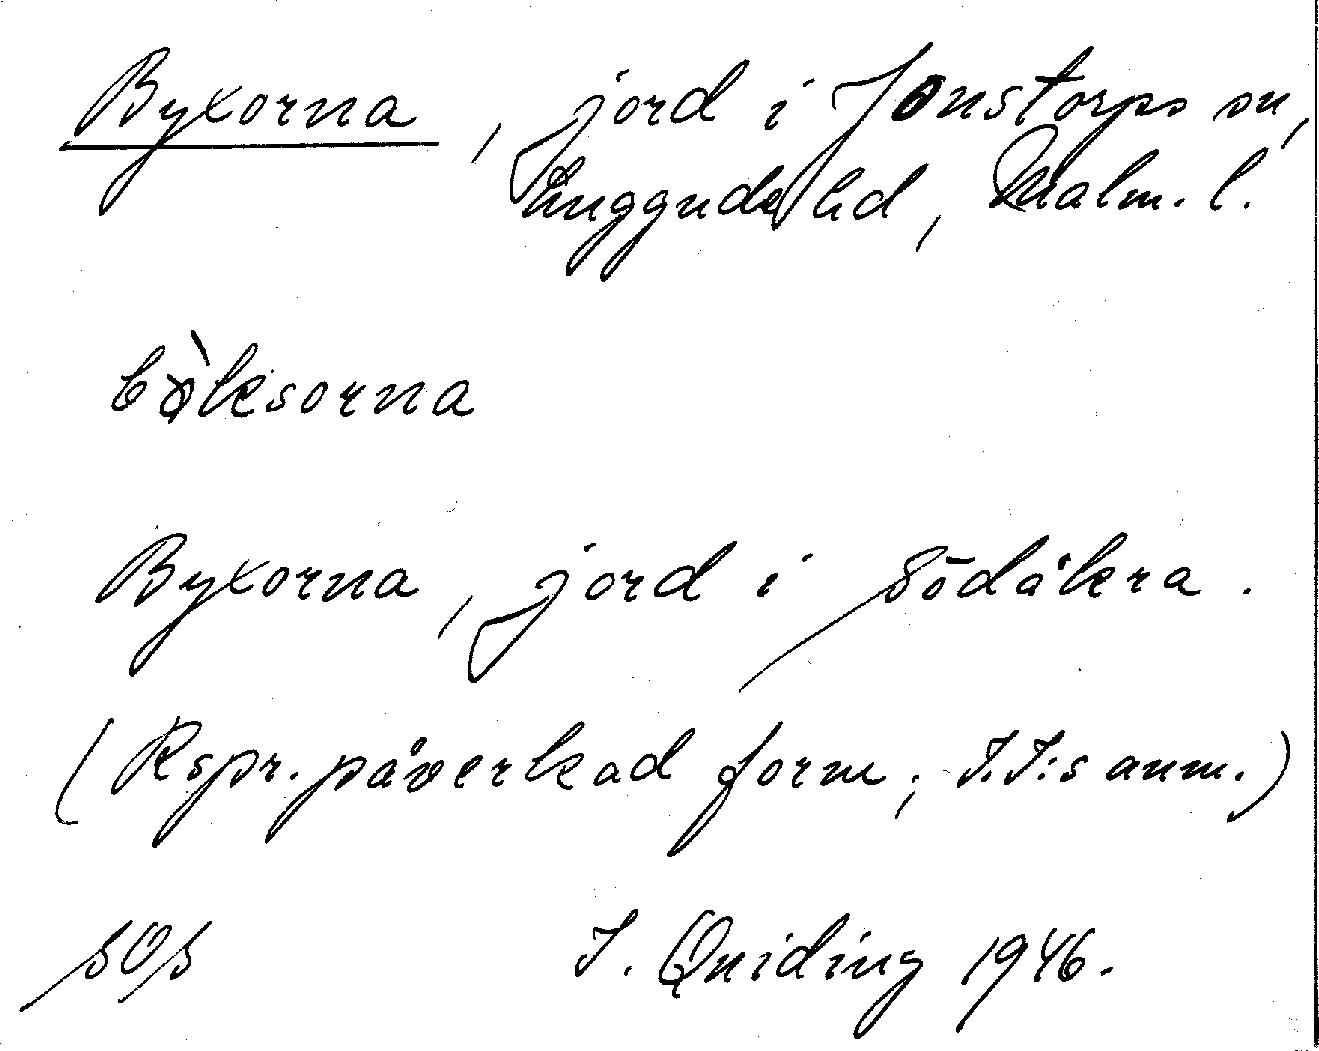 Byxorna, jord i Jonstorps sn,
Luggude hd, Malm. l.
bø̀ksorna
Byxorna, jord i Södåkra.
(Rspr. påverkad form; I.I:s anm.)
SOS I. Quiding 1946.